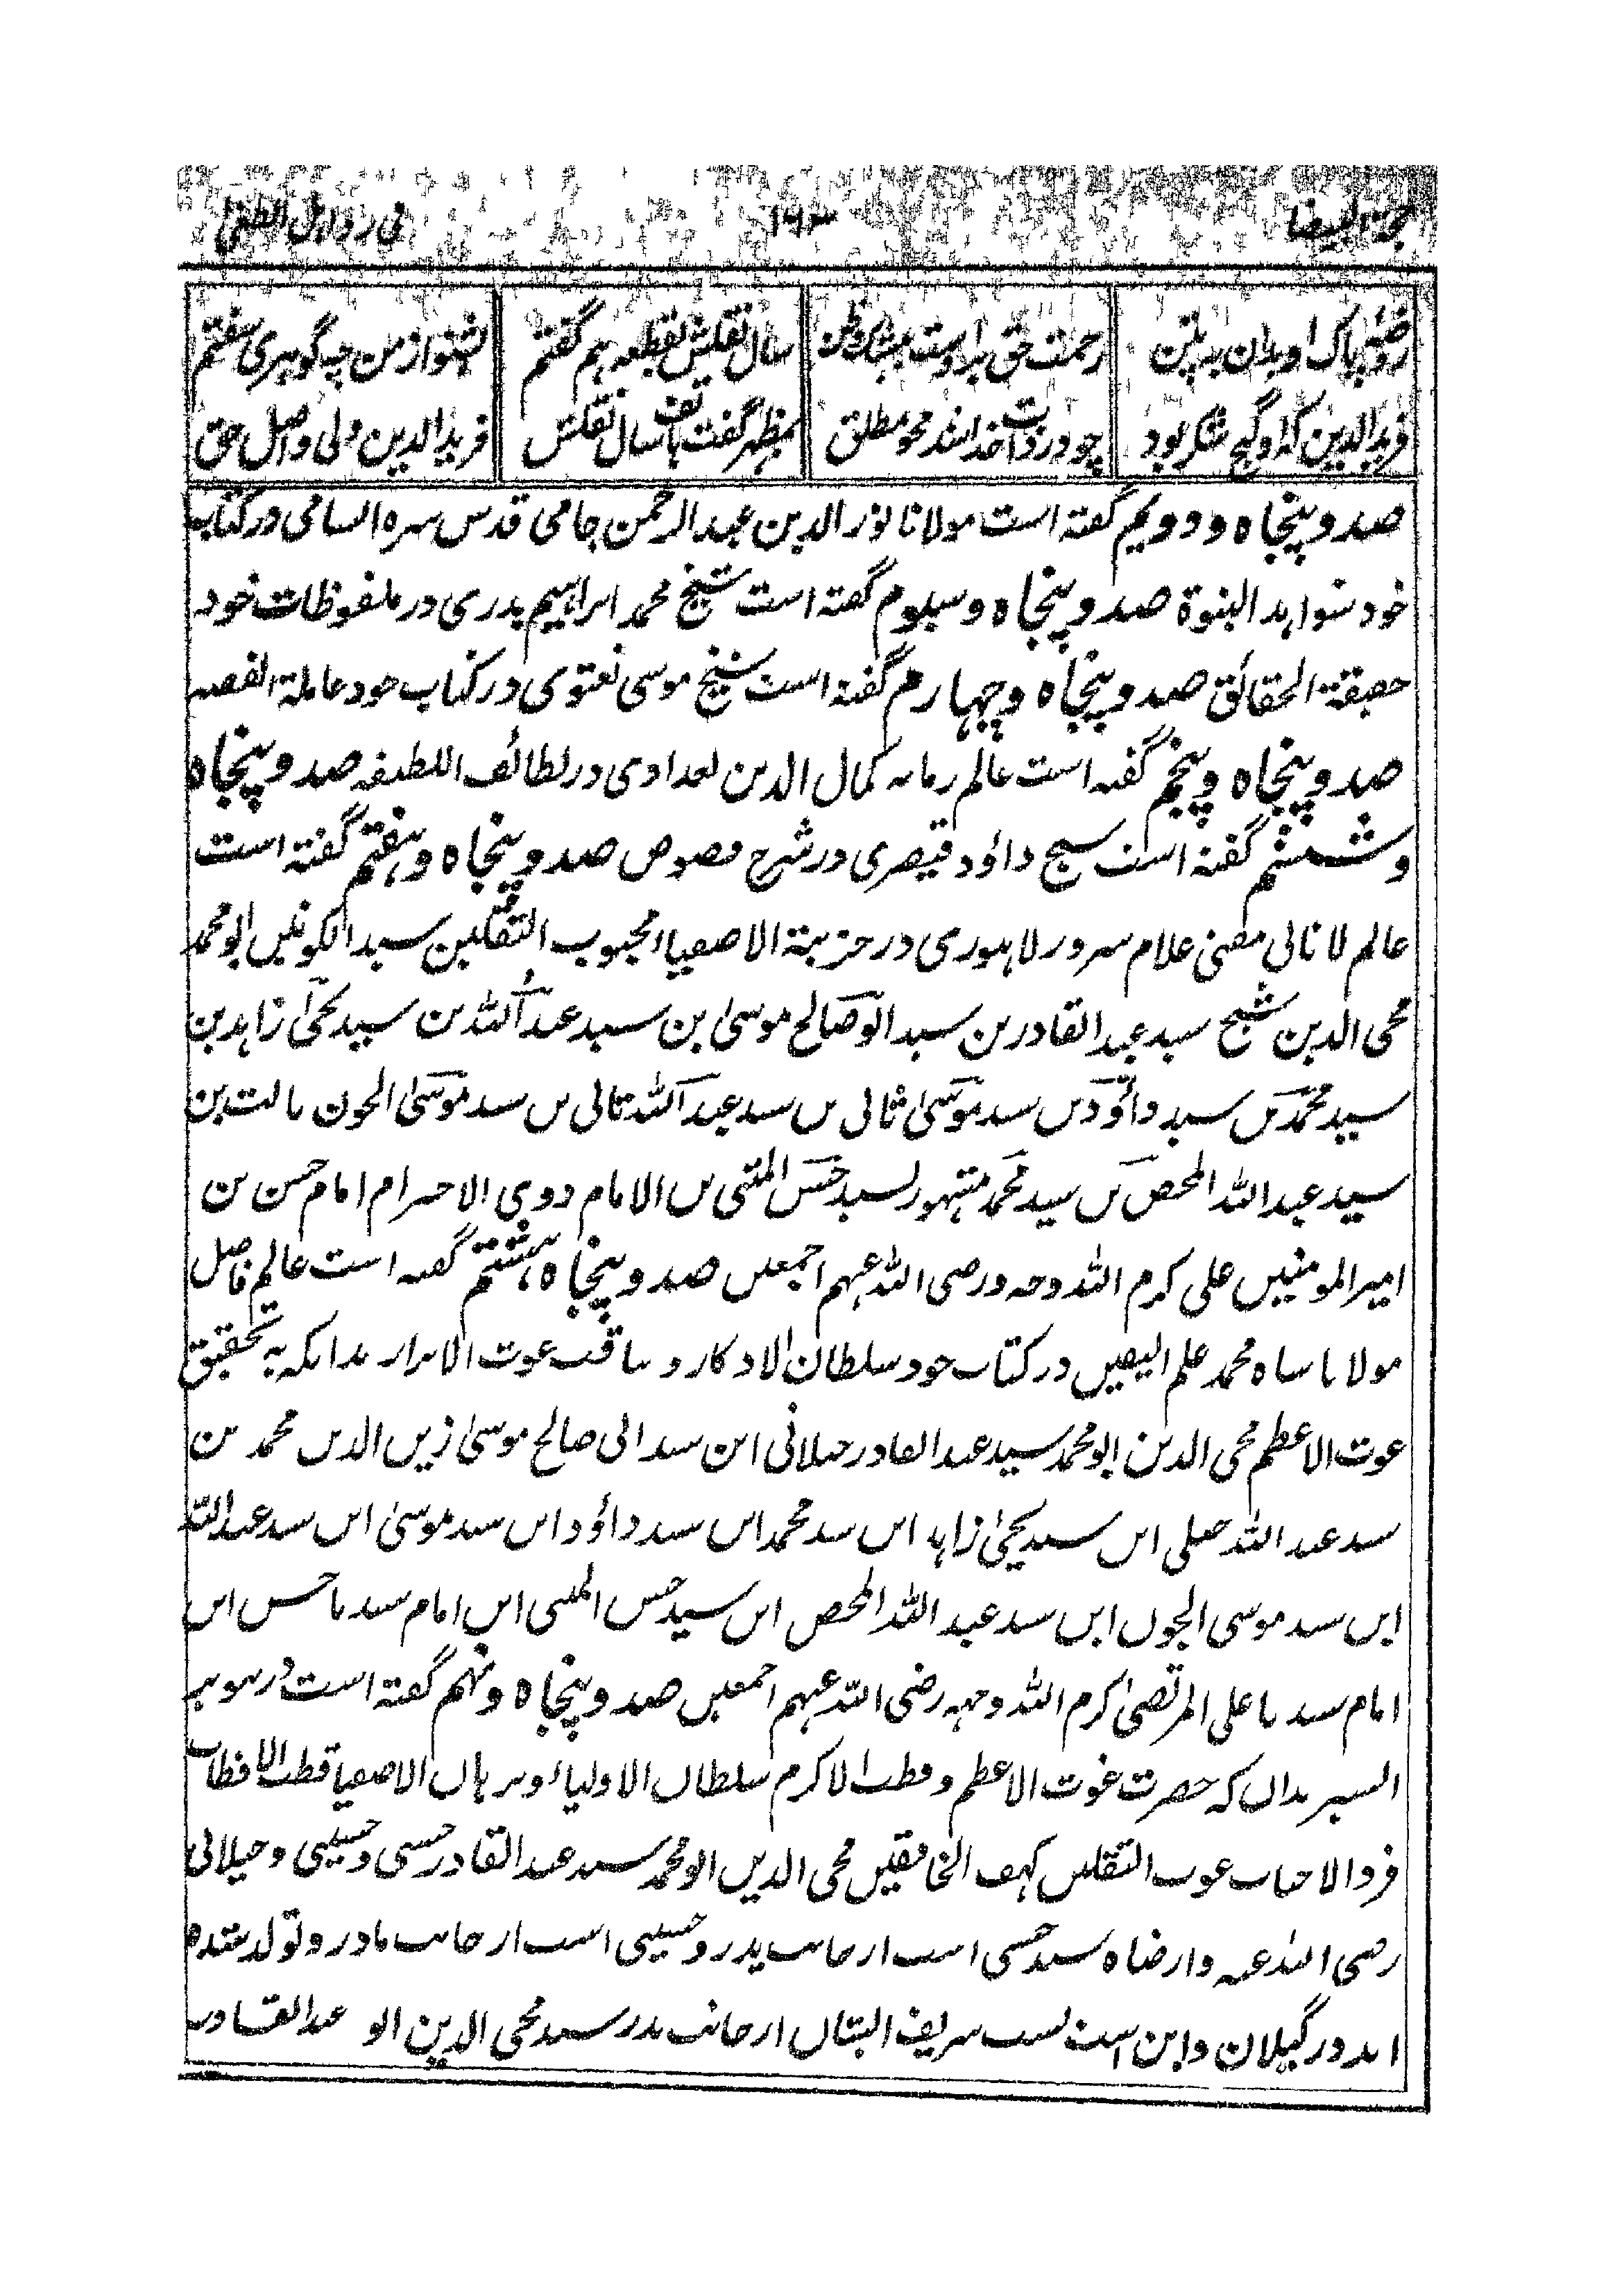 حجة البیضا ۱۹۳ فی رد اہل الطغی
روضہ پاک او بدان بہ پتن رحمت حق براوست سال نقلش بقطعہ ہم گفتم بشنو از من چہ گوہری سفتم
فرید الدین کہ او گنج شکر بود چو در ذات خدا شد محو مطلق بمظہر گفت ہاتف سال نقلش فرید الدین ولی واصل حق
صد و پنجاہ و دویم گفتہ است مولانا نور الدین عبد الرحمن جامی قدس سرہ السامی در کتاب
خود شواہد النبوة صد و پنجاہ و سیوم گفتہ است شیخ محمد ابراہیم بدری در ملفوظات خود
حقیقة الحقائق صد و پنجاہ و چہارم گفتہ است شیخ موسی در کتاب خود عاملة
صد و پنجاہ و پنجم گفتہ است عالم زمانہ کمال الدین بغدادی در لطائف اللطیفہ صد و پنجاہ
و ششم گفتہ است شیخ داؤد قیصری در شرح فصوص صد و پنجاہ و ہفتم گفتہ است
عالم لا ثانی مفتی غلام سرور لاہوری در خزینة الاصفیا محبوب الثقلین سید الکونین ابو محمد
محی الدین شیخ سید عبد القادر بن سید ابو صالح موسیٰ بن سید عبد اللہ بن سید یحییٰ زاہد بن
سید محمد بن سید داؤد بن سید موسیٰ ثانی بن سید عبد اللہ ثانی بن سید موسیٰ الجون ثالث بن
سید عبد اللہ المحض بن سید محمد مشہور بسید حسن المثنی بن الامام ذوی الاحترام امام حسن بن
امیر المومنین علی کرم اللہ وجہہ و رضی اللہ عنہم اجمعین صد و پنجاہ ہشتم گفتہ است عالم فاضل
مولانا شاہ محمد علم الیقین در کتاب خود سلطان الاذکار و مناقب غوث الابرار بدانکہ بہ تحقیق
غوث الاعظم محی الدین ابو محمد سید عبد القادر جیلانی ابن سید ابی صالح موسیٰ زین الدین محمد بن
سید عبد اللہ جیلی ابن سید یحییٰ زاہد ابن سید محمد ابن سید داؤد ابن سید موسیٰ ابن سید عبد اللہ
ابن سید موسی الجون ابن سید عبد اللہ المحض ابن سید حسن المثنی ابن امام سیدنا حسن ابن
امام سیدنا علی المرتضیٰ کرم اللہ وجہہ رضی اللہ عنہم اجمعین صد و پنجاہ و نہم گفتہ است در
السیر بدان کہ حضرت غوث الاعظم و قطب الاکرم سلطان الاولیاء و برہان الاصفیا قطب الاقطاب
فرد الاحباب غوث الثقلین کہف الخافقین محی الدین ابو محمد سید عبد القادر حسنی و حسینی و جیلانی
رضی اللہ عنہ و ارضاہ سید حسنی است از جانب پدر و حسینی است از جانب مادر و تولد شدہ
اند در گیلان و این است نسب شریف ایشان از جانب پدر سید محی الدین ابو عبد القادر